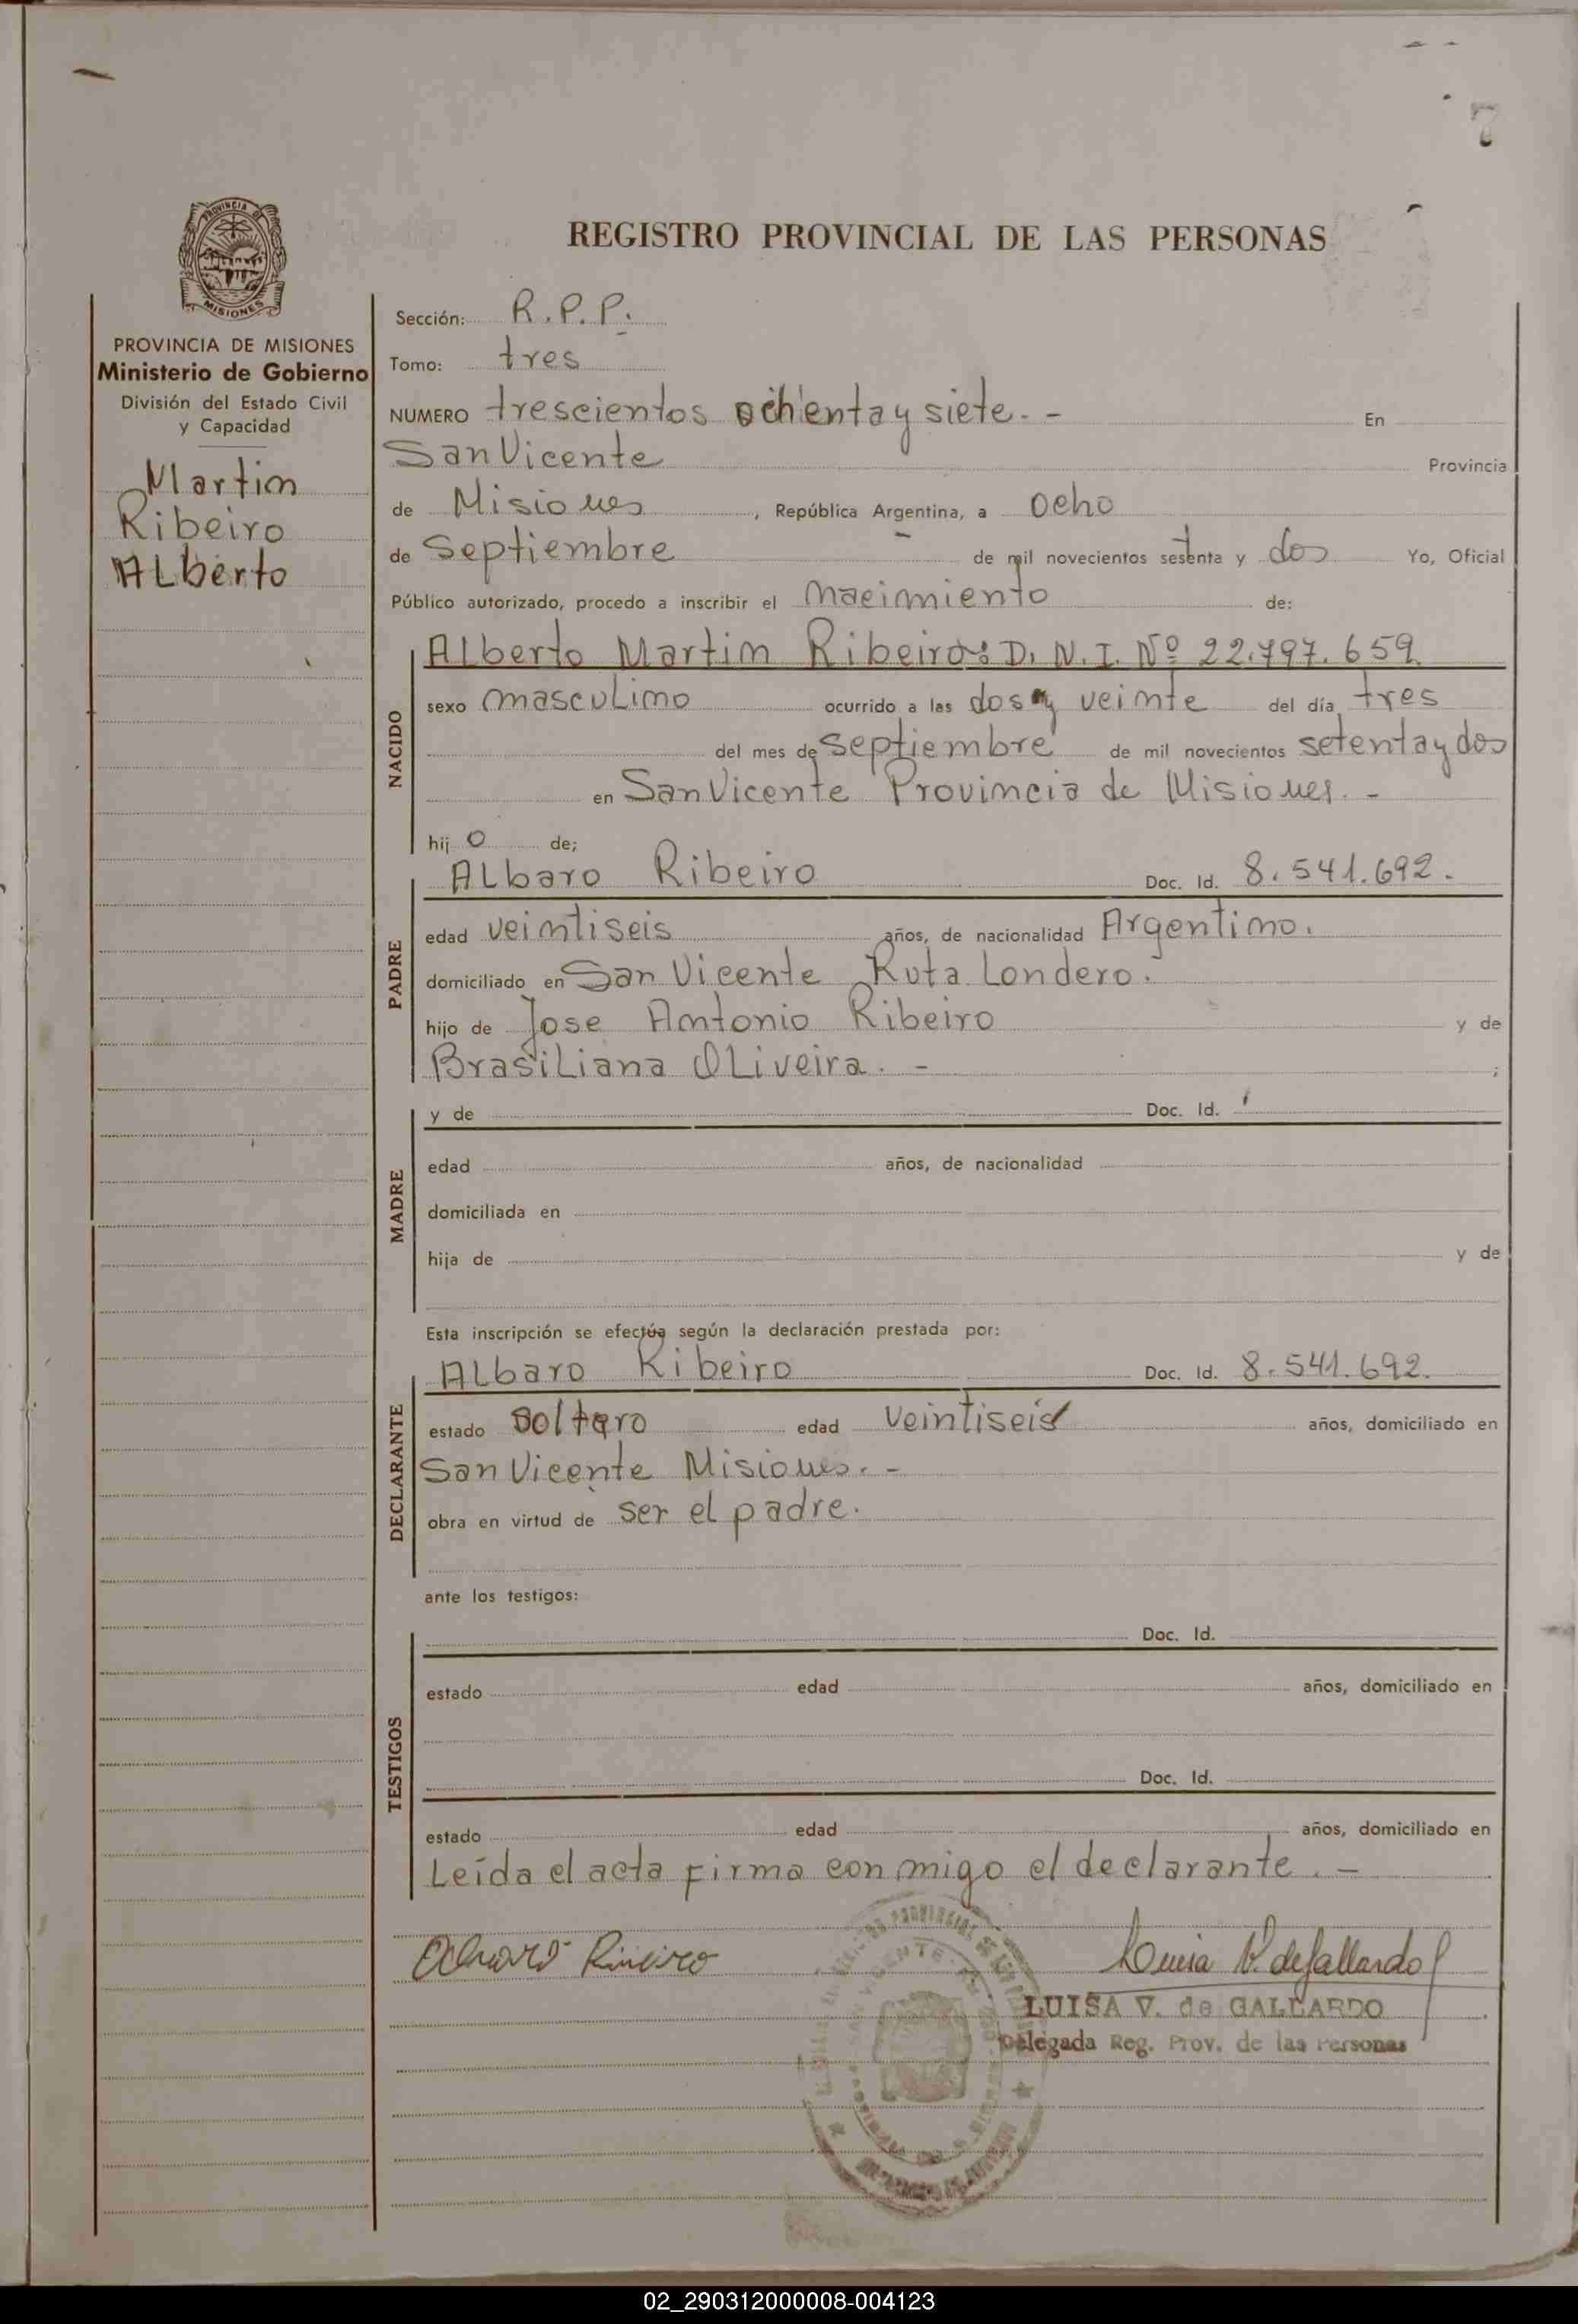 7
REGISTRO PROVINCIAL DE LAS PERSONAS
PROVINCIA DE
MISIONES
PROVINCIA DE MISIONES
Ministerio de Gobierno
División del Estado Civil
y Capacidad
Martin
Ribeiro
Alberto
Sección: R.P.P.
Tomo: tres
NUMERO trescientos ochenta y siete.- En
San Vicente Provincia
de Misiones, República Argentina, a ocho
de Septiembre de mil novecientos setenta y dos Yo, Oficial
Público autorizado, procedo a inscribir el nacimiento de:
NACIDO
Alberto Martin Ribeiro: D.N.I. Nº 22.797.659
sexo masculino ocurrido a las dos y veinte del día tres
del mes de septiembre de mil novecientos setenta y dos
en San Vicente Provincia de Misiones.-
hijo de;
PADRE
Albaro Ribeiro Doc. Id. 8.541.692.
edad veintiseis años, de nacionalidad Argentino.
domiciliado en San Vicente Ruta Londero.
hijo de Jose Antonio Ribeiro y de
Brasiliana Oliveira.- ;
MADRE
y de Doc. Id.
edad años, de nacionalidad
domiciliada en
hija de y de
Esta inscripción se efectúa según la declaración prestada por:
DECLARANTE
Albaro Ribeiro Doc. Id. 8.541.692.
estado soltero edad veintiseis años, domiciliado en
San Vicente Misiones.-
obra en virtud de ser el padre.
ante los testigos:
TESTIGOS
Doc. Id.
estado edad años, domiciliado en
Doc. Id.
estado edad años, domiciliado en
Leída el acta firma conmigo el declarante.-
Luisa V. de Gallardo
LUISA V. de GALLARDO
Delegada Reg. Prov. de las Personas
02_290312000008-004123